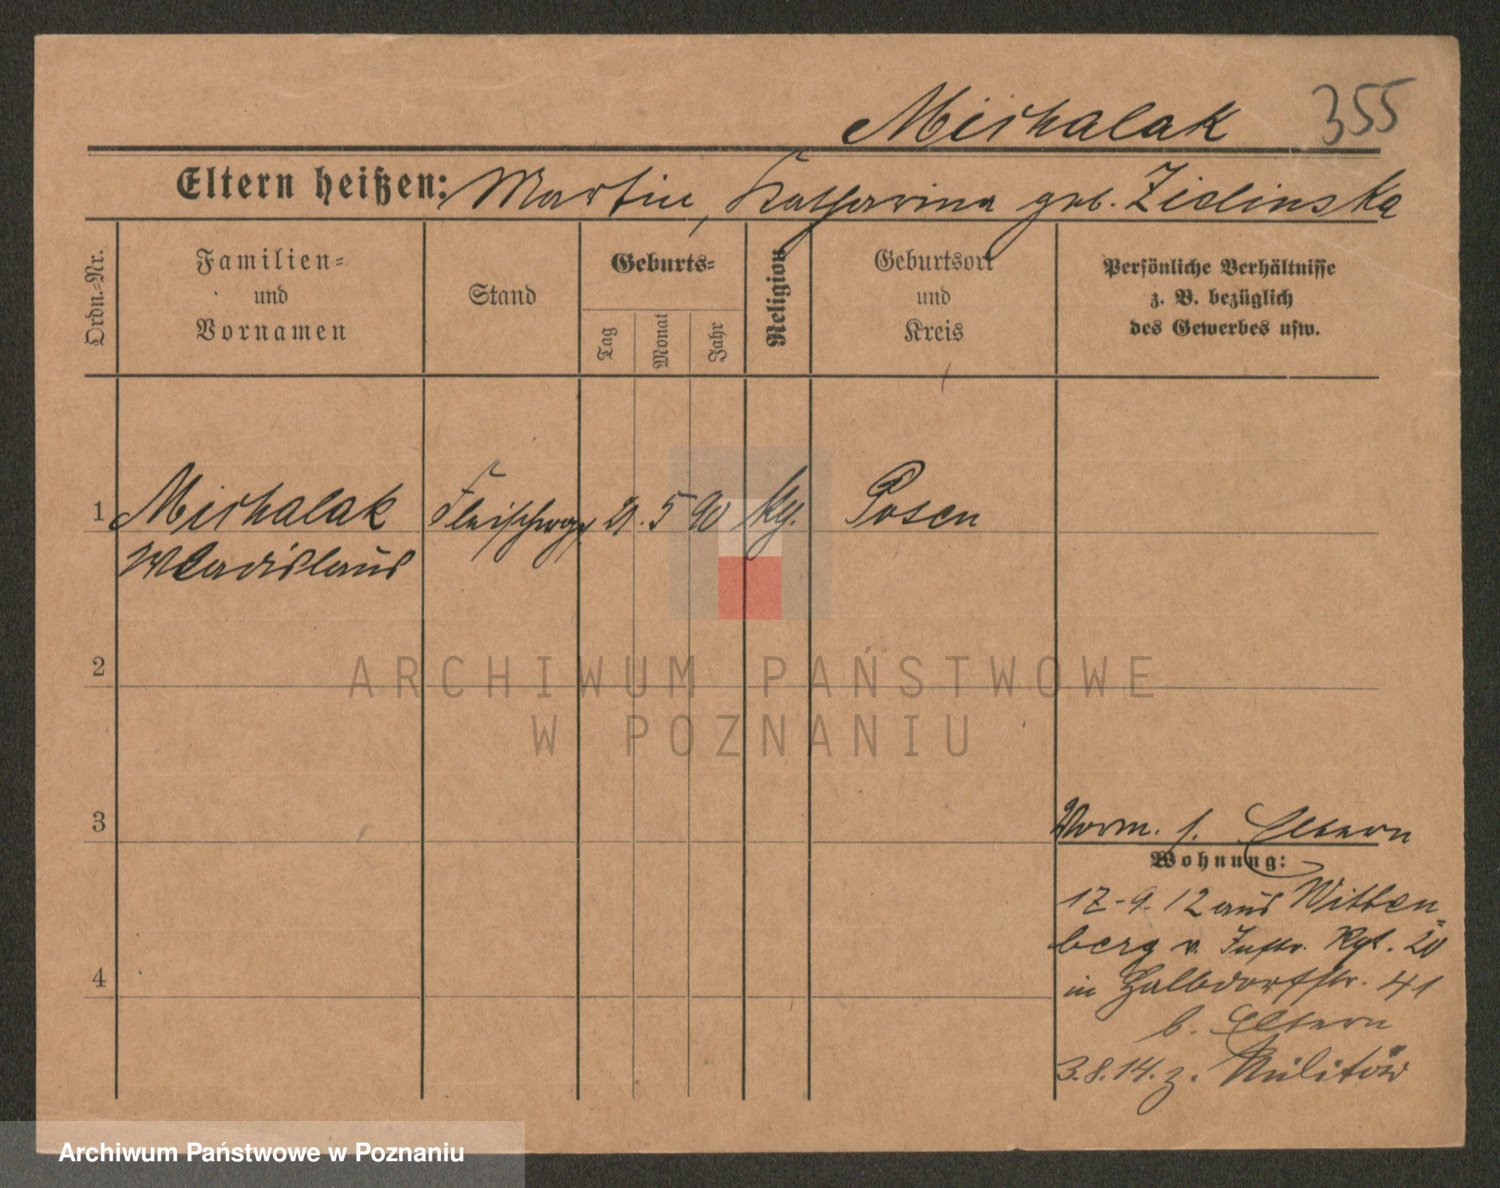 Michalak 355
Eltern heißen: Martin, Katharina geb. Zielinska
Ordn.-Nr.
Familien-
und
Vornamen
Stand
Geburts-
Tag
Monat
Jahr
Religion
Geburtsort
und
Kreis
Persönliche Verhältnisse
z. B. bezüglich
des Gewerbes usw.
1 Michalak 21. 5 90 Posen
Wladislaus
2
ARCHIWUM PAŃSTWOWE
W POZNANIU
3
Vorm. s. Eltern
Wohnung:
17-9-12 aus Witten-
berg v. Inftr. Rgt. 20
4
in Halbdorfstr. 41
b. Eltern
3.8.14. z. Militär
Archiwum Państwowe w Poznaniu